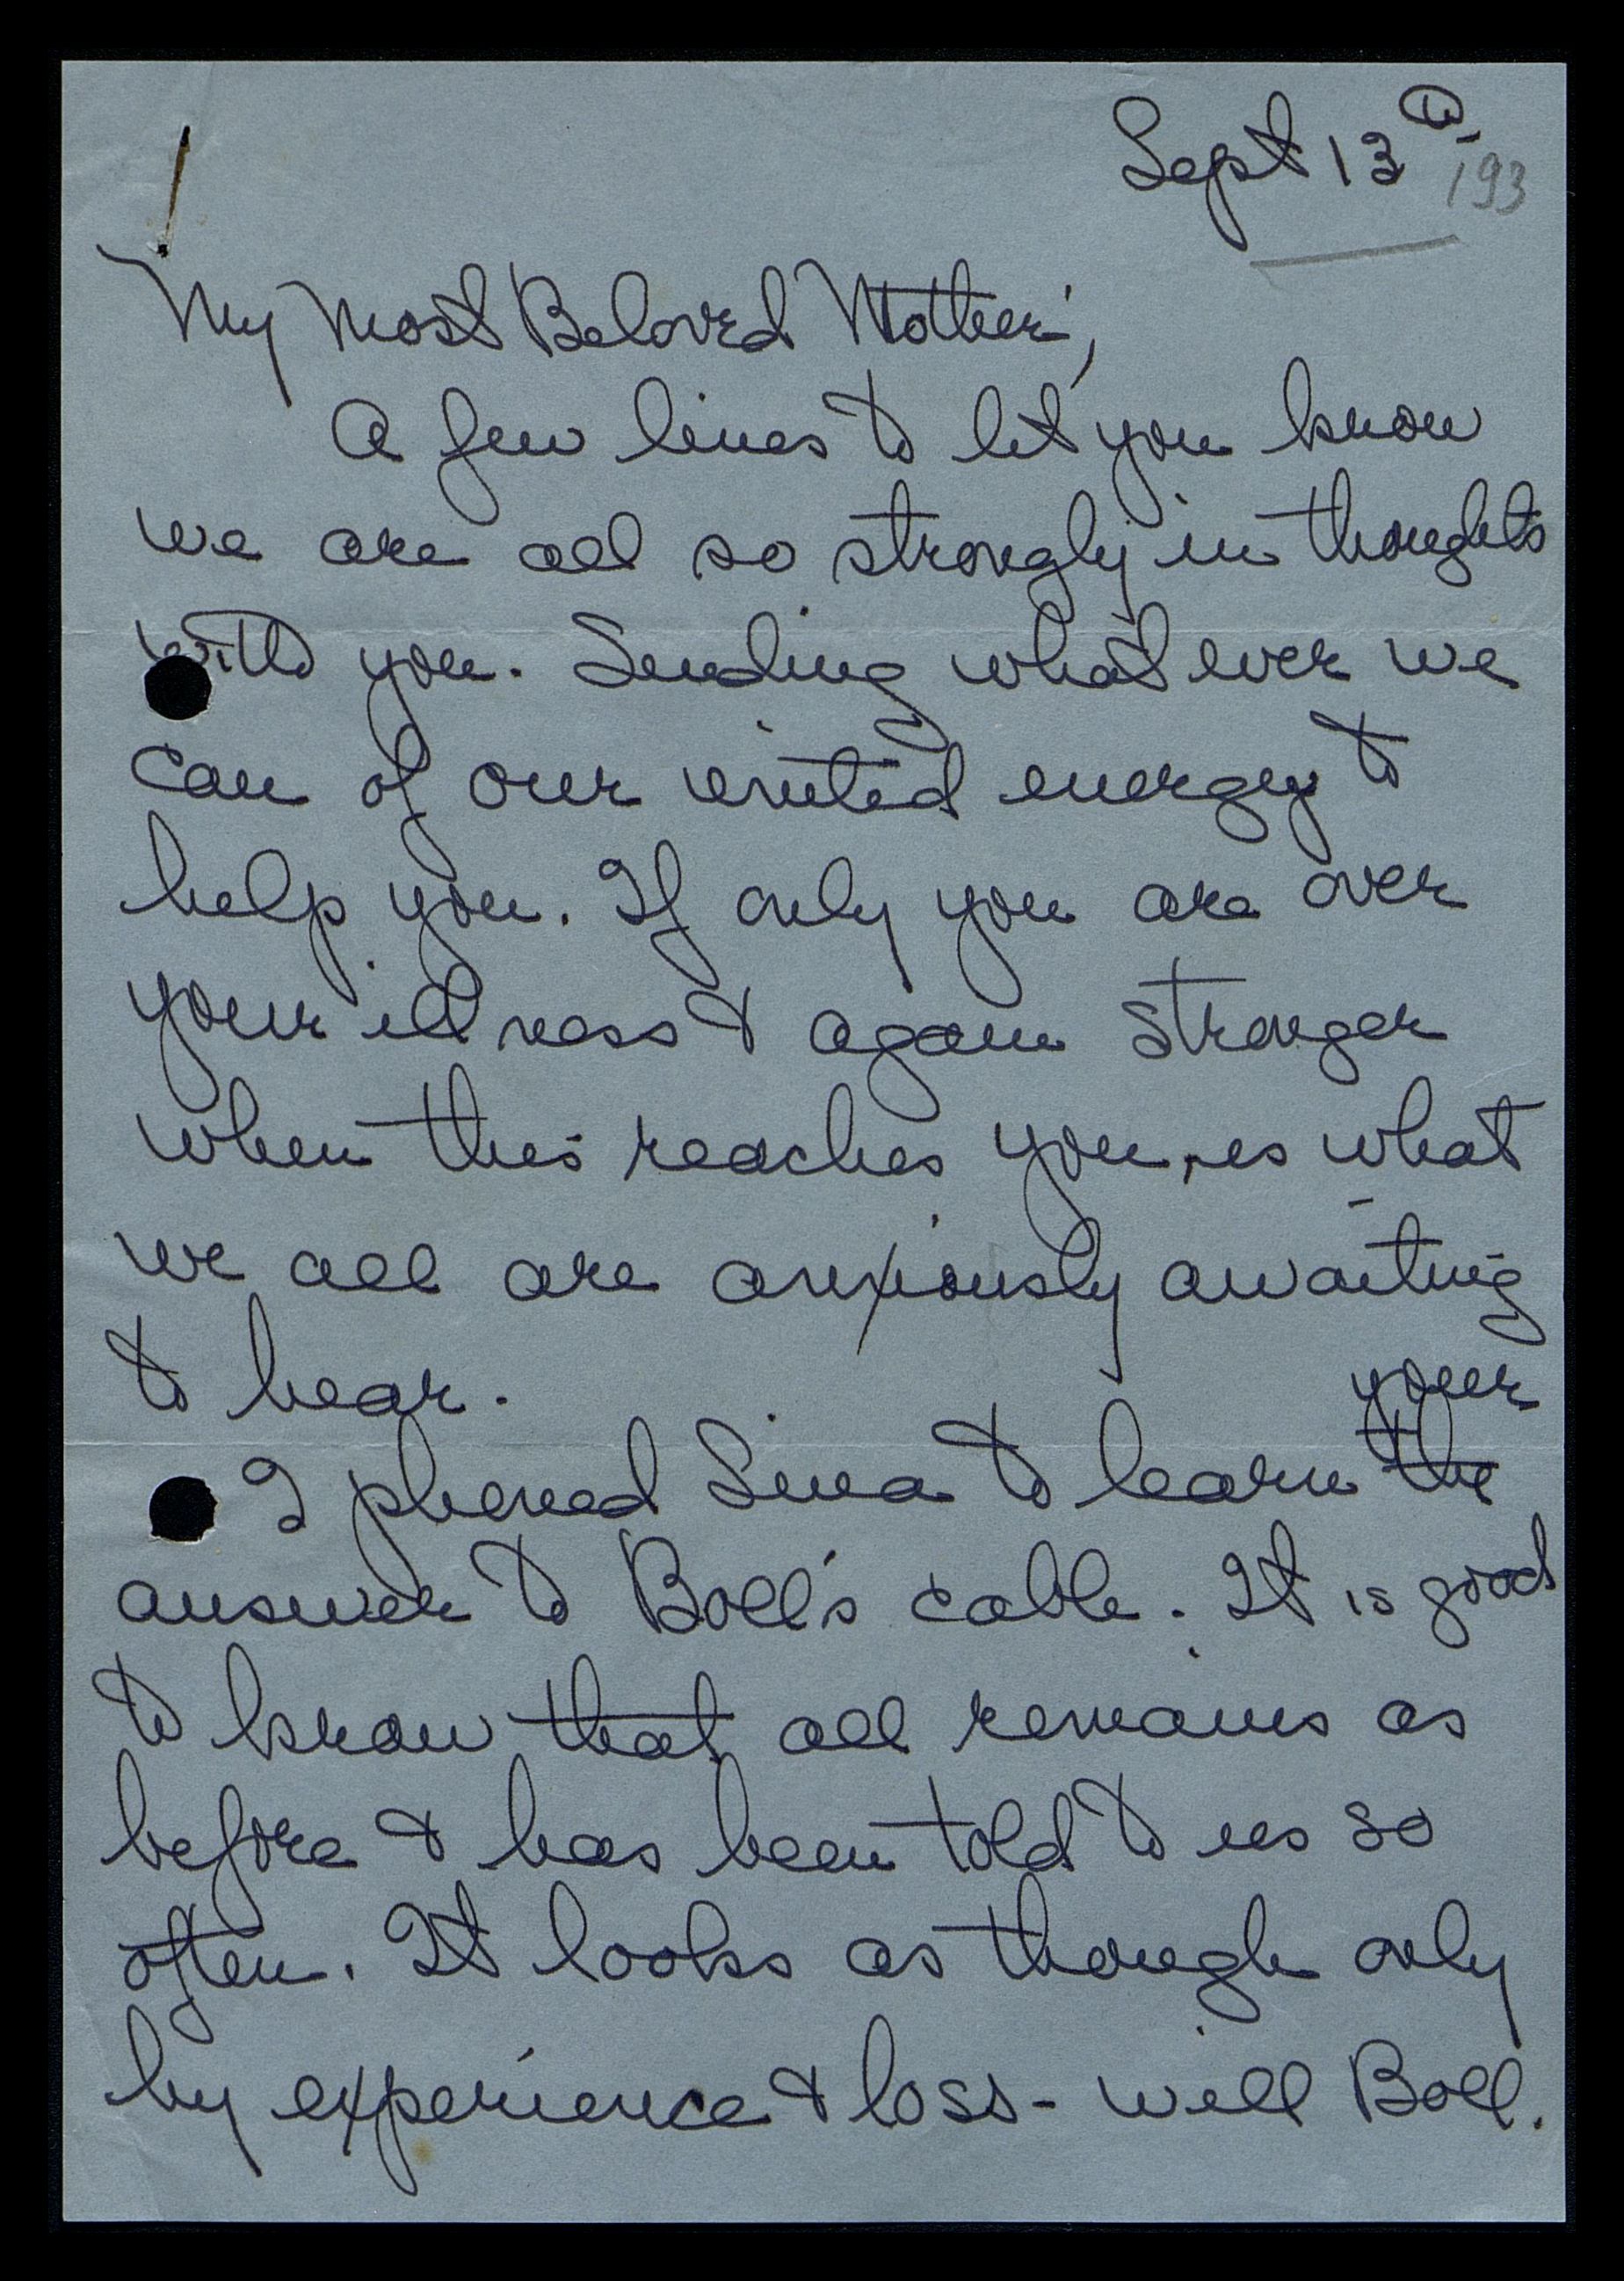 Sept 13th, 193
My Most Beloved Mother,
A few lines to let you know
we are all so strongly in thoughts
with you. Sending what ever we
can of our united energy to
help you. If only you are over
your illness & again stronger
when this reaches you, is what
we all are anxiously awaiting
to hear.
your
I phoned Sina to learn the
answer to Boll's cable. It is good
to know that all remains as
before & has been told to us so
often. It looks as though only
by experience & loss - will Boll.